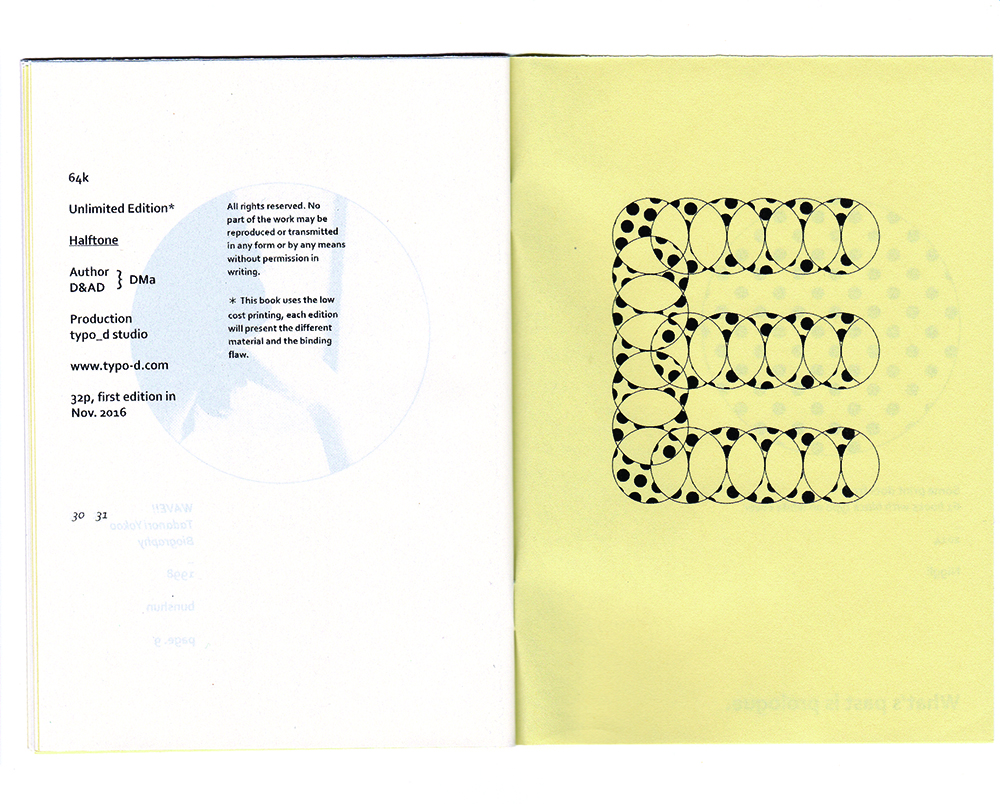 64k
Unlimited Edition*
Halftone
Author
D&AD } DMa
Production
typo_d studio
www.typo-d.com
32p, first edition in
Nov. 2016
All rights reserved. No
part of the work may be
reproduced or transmitted
in any form or by any means
without permission in
writing.
* This book uses the low
cost printing, each edition
will present the different
material and the binding
flaw.
30 31
WAVE!!
Tadanori Yokoo
Biography
1998
bunshun
page. 9
E
What's past is prologue.